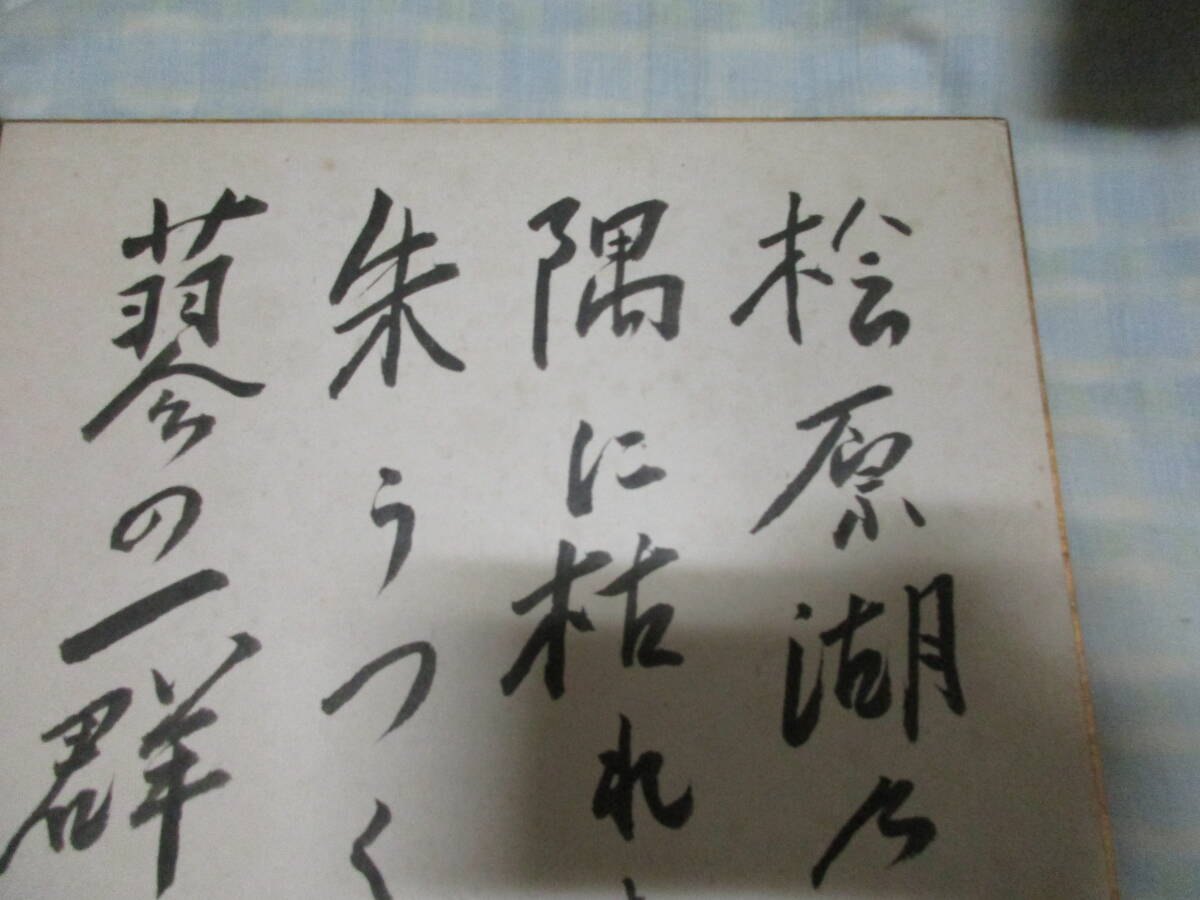 桧原湖の
隅に枯れ
朱うつく
蓼の一群